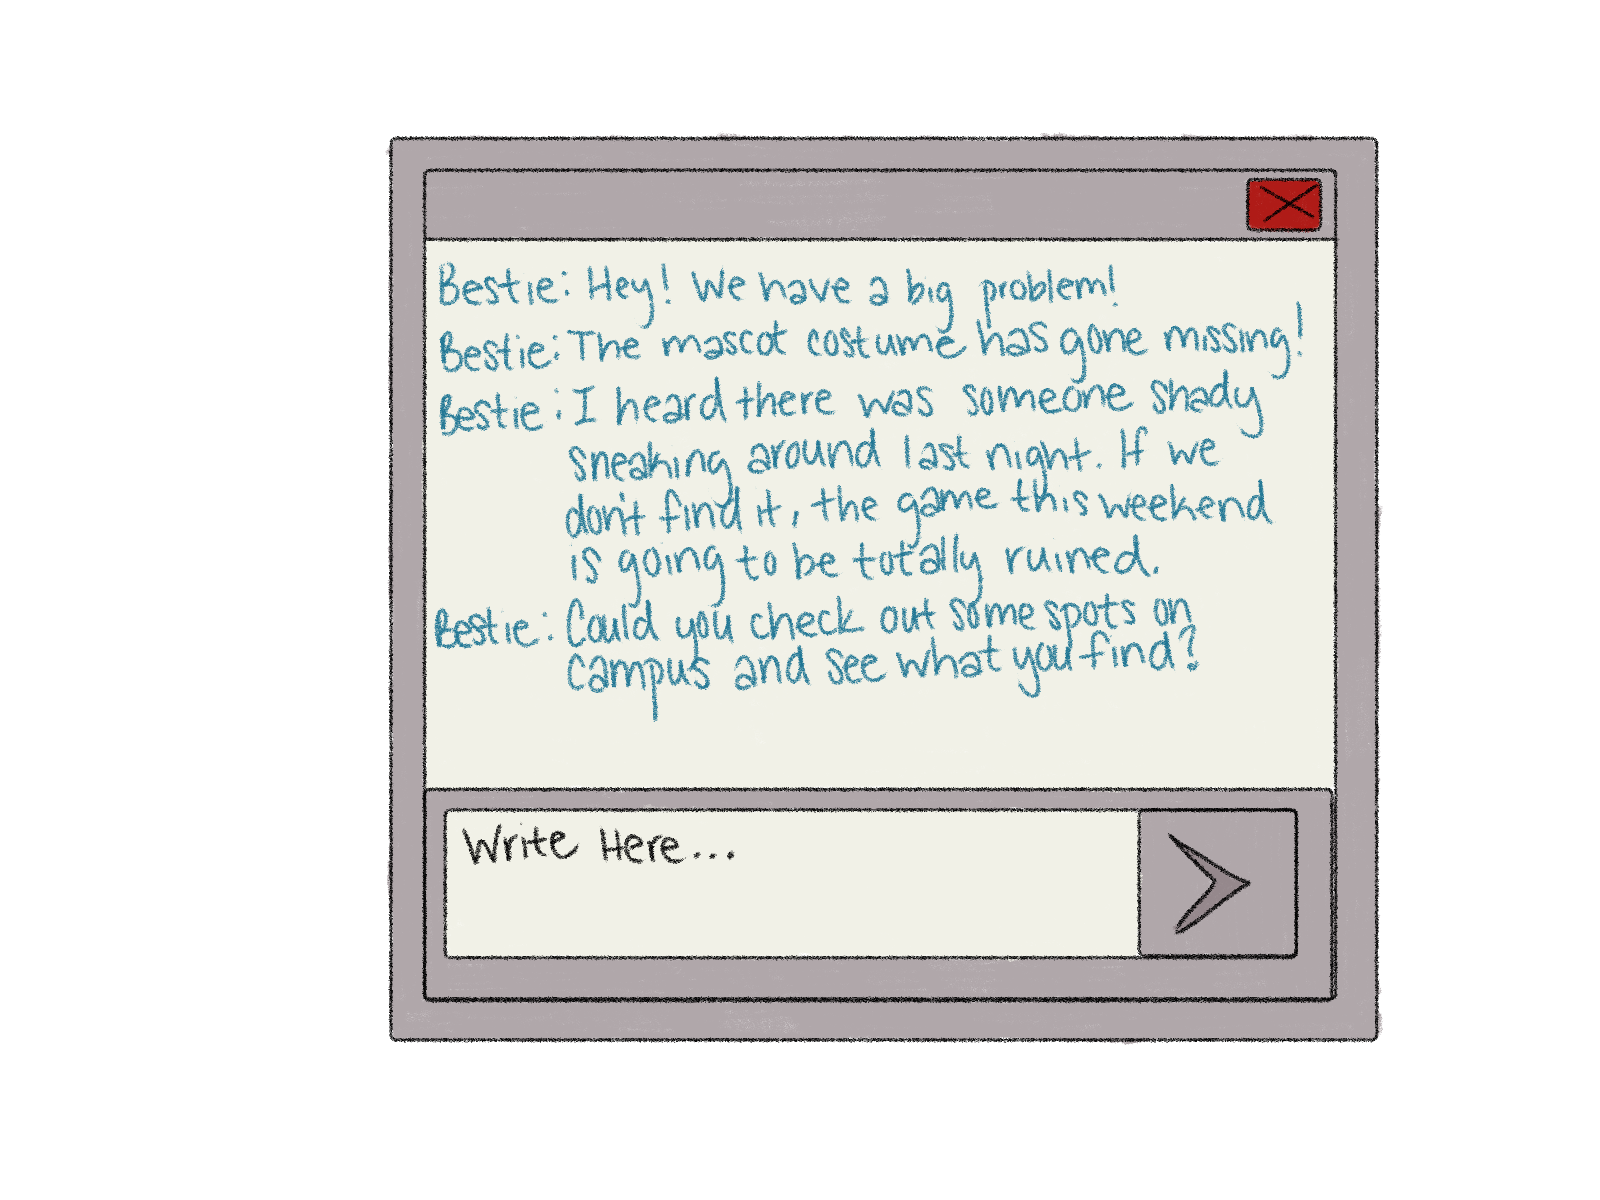 Bestie: Hey! We have a big problem!
Bestie: The mascot costume has gone missing!
Bestie: I heard there was someone shady
sneaking around last night. If we
don't find it, the game this weekend
is going to be totally ruined.
Bestie: Could you check out some spots on
campus and see what you find?
Write Here...